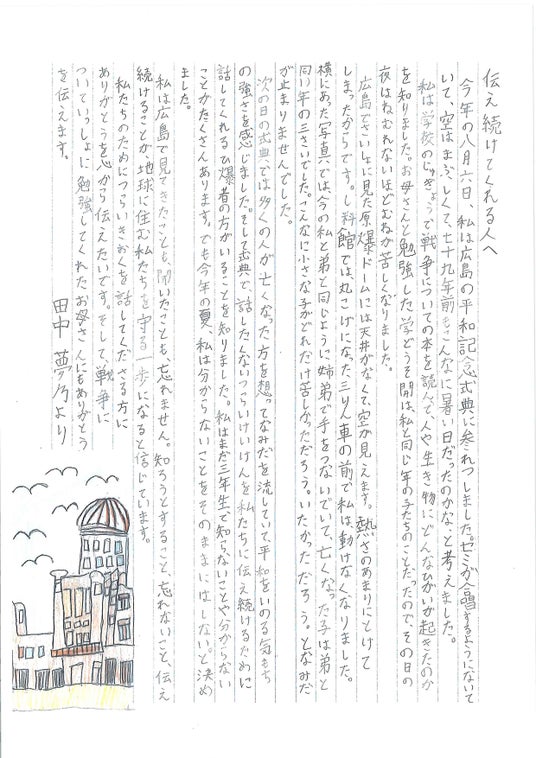 伝え続けてくれる人へ
今年の八月六日、私は広島の平和記念式典に参れつしました。セミが合唱するようにないて
いて、空はまぶしくて、七十九年前もこんなに暑い日だったのかなと考えました。
私は学校のじゅぎょうで戦争についての本を読んで、人や生き物にどんなひがいが起きたのか
を知りました。お母さんと勉強した学どうそ開は、私と同じ年の子たちのことだったので、その日の
夜はねむれないほどむねが苦しくなりました。
広島でさいしょに見た原爆ドームには天井がなくて、空が見えます。熱さのあまりにとけて
しまったからです。し料館では、丸こげになった三りん車の前で私は、動けなくなりました。
横にあった写真では今の私と弟と同じように姉弟で手をつないでいて、亡くなった子は弟と
同い年の三さいでした。こんなに小さな子がどれだけ苦しかっただろう。いたかっただろう。となみだ
が止まりませんでした。
次の日の式典では多くの人が亡くなった方を想ってなみだを流していて、平和をいのる気もち
の強さを感じました。そして式典で、話したくないつらいけいけんを私たちに伝え続けるために
話してくれるひ爆者の方がいることを知りました。私はまだ三年生で知らないことや分からない
ことがたくさんあります。でも今年の夏、私は分からないことをそのままにはしない。と決め
ました。
私は広島で見てきたことも、聞いたことも、忘れません。知ろうとすること、忘れないこと、伝え
続けることが、地球に住む私たちを守る一歩になると信じています。
私たちのためにつらいきおくを話してくださる方に
ありがとうを心から伝えたいです。そして、戦争に
ついていっしょに勉強してくれたお母さんにもありがとう
を伝えます。
田中 夢乃より